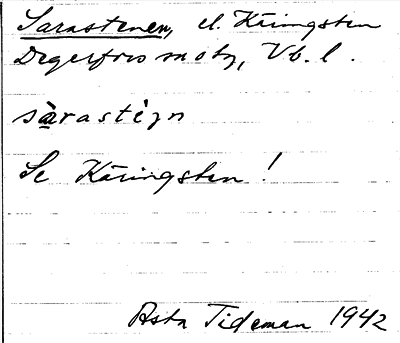 Sarastenen, el. Käringsten
Degerfors motz, Vb. l.
sàrastèɩn
Se Käringsten!
Asta Tideman 1942